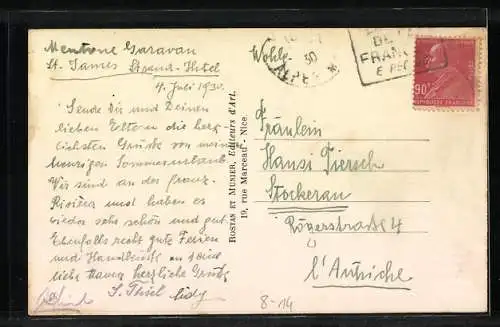 Mentone Garavan
St. James Strand-Hotel
4. Juli 1930.
Sende Dir und Deinen
lieben Eltern die herz-
lichsten Grüße von meinem
heurigen Sommerurlaub.
Wir sind an der franz.
Riviera und haben es
wieder sehr schön und gut.
Ebenfalls recht gute Ferien
und Handküsse an
liebe herzliche Grüße
S. Thiel
ROSTAN ET MUNIER, Editeurs d'Art.
19, rue Marceau - Nice.
30
ALPES
DE
FRAN
90
REPUBLIQUE FRANÇAISE
Wohlg.
Fräulein
Hansi Tiersch
Stockerau
Rögerstraße 4
l'Autriche
8-14